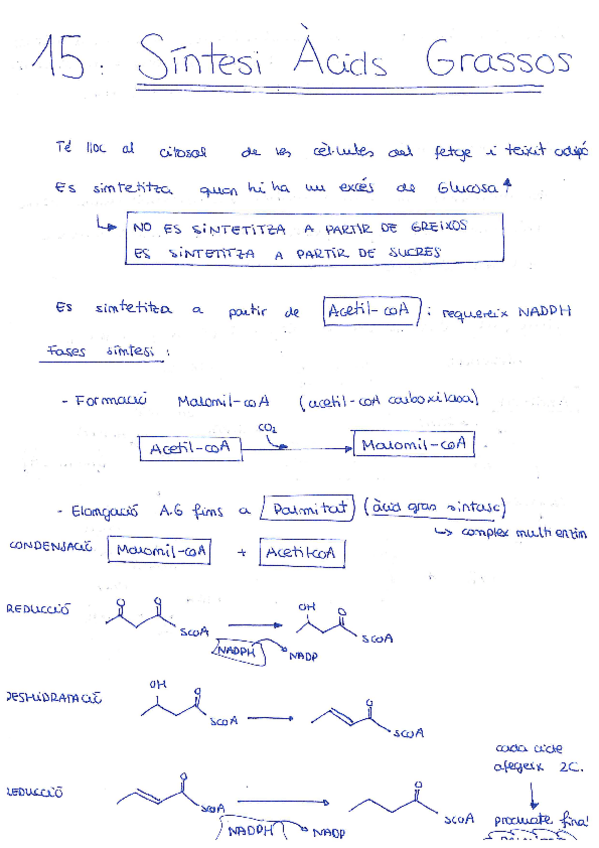 15. Síntesi Àcids Grassos
Té lloc al citosol de les cèl·lules del fetge i teixit adipó
Es sintetitza quan hi ha un excés de Glucosa
NO ES SINTETITZA A PARTIR DE GREIXOS
ES SINTETITZA A PARTIR DE SUCRES
Es sintetitza a partir de Acetil-coA : requereix NADPH
Fases síntesi :
- Formació Malonil-coA (acetil-coA carboxilasa)
CO2
Acetil-coA Malonil-coA
- Elongació A.G fins a Palmitat (àcid gras sintasa)
complex multienzim
CONDENSACIÓ Malonil-coA + Acetil-coA
REDUCCIÓ O O SCoA OH O SCoA
NADPH NADP
DESHIDRATACIÓ OH O SCoA O SCoA
cada cicle
afegeix 2C.
REDUCCIÓ O SCoA O SCoA producte final
NADPH NADP